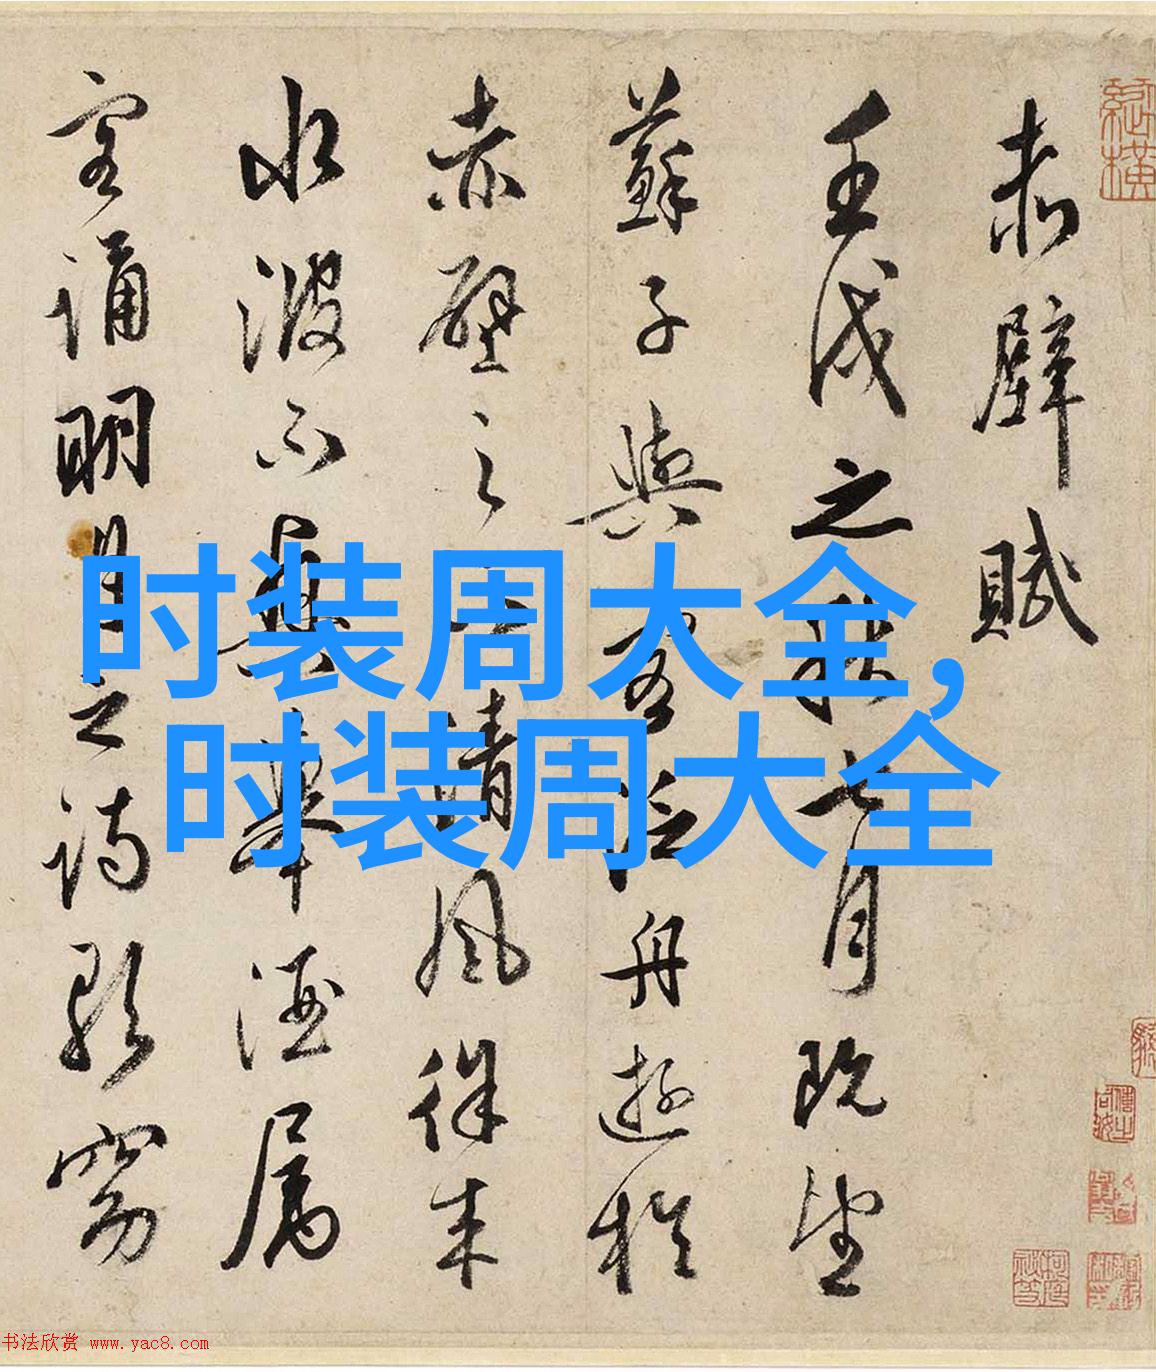 赤壁賦
壬戌之秋七月既望
蘇子與客泛舟遊於
赤壁之下清風徐來
水波不興舉酒屬
客誦明月之詩歌窈
时装周大全,
时装周大全
书法欣赏 www.yac8.com